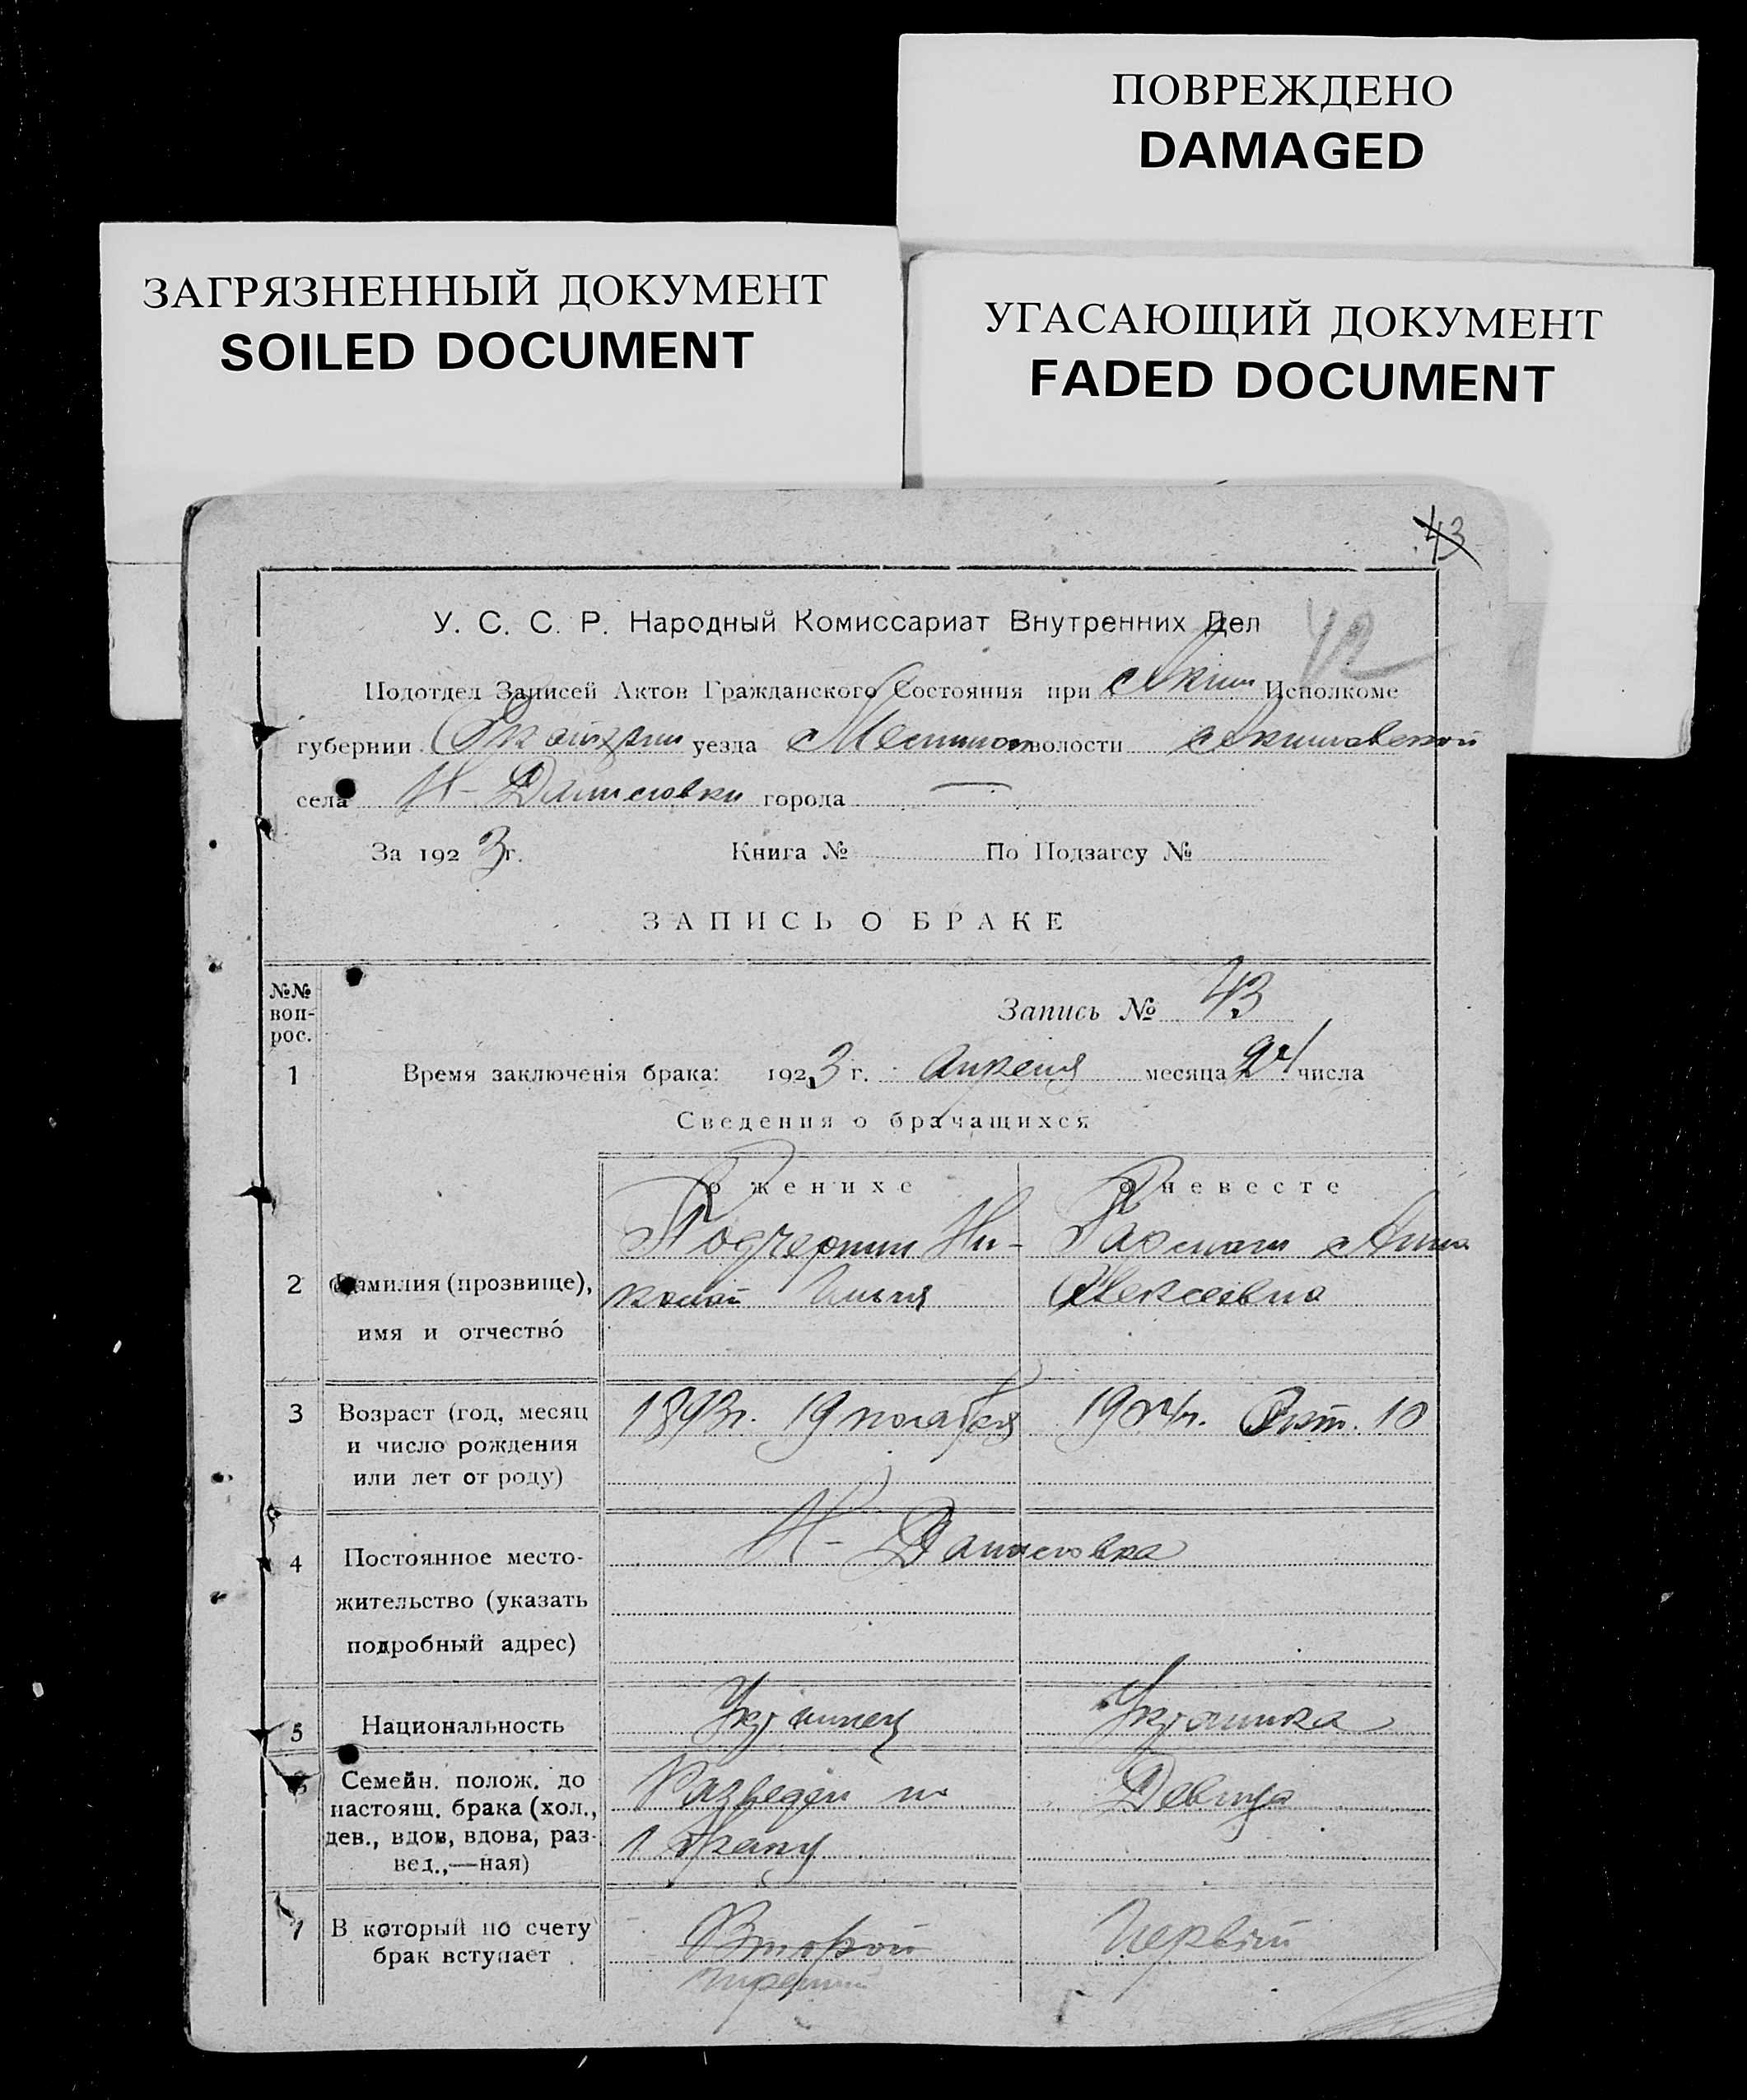 ПОВРЕЖДЕНО
DAMAGED
ЗАГРЯЗНЕННЫЙ ДОКУМЕНТ
SOILED DOCUMENT
УГАСАЮЩИЙ ДОКУМЕНТ
FADED DOCUMENT
43
42
У. С. С. Р. Народный Комиссариат Внутренних Дел
Подотдел Записей Актов Гражданского Состояния при Аким Исполкоме
губернии уезда волости Акимовской
села Н-Даниловки города —
За 1923 г. Книга № По Подзагсу №
ЗАПИСЬ О БРАКЕ
№№ вопрос.
Запись № 43
1 Время заключенія брака: 1923 г. Апреля месяца 24 числа
Сведения о брачащихся
о женихе о невесте
2 Фамилия (прозвище), имя и отчество
Ни-
колай Анна
Алексеевна
3 Возраст (год, месяц и число рождения или лет от роду)
1893г. 19 ноября 1904г. Окт. 10
4 Постоянное местожительство (указать подробный адрес)
Н-Даниловка
5 Национальность Украинец Украинка
6 Семейн. полож. до настоящ. брака (хол., дев., вдов, вдова, развед.,—ная)
Разведен по Девица
1 браку
7 В который по счету брак вступает
Второй Первый